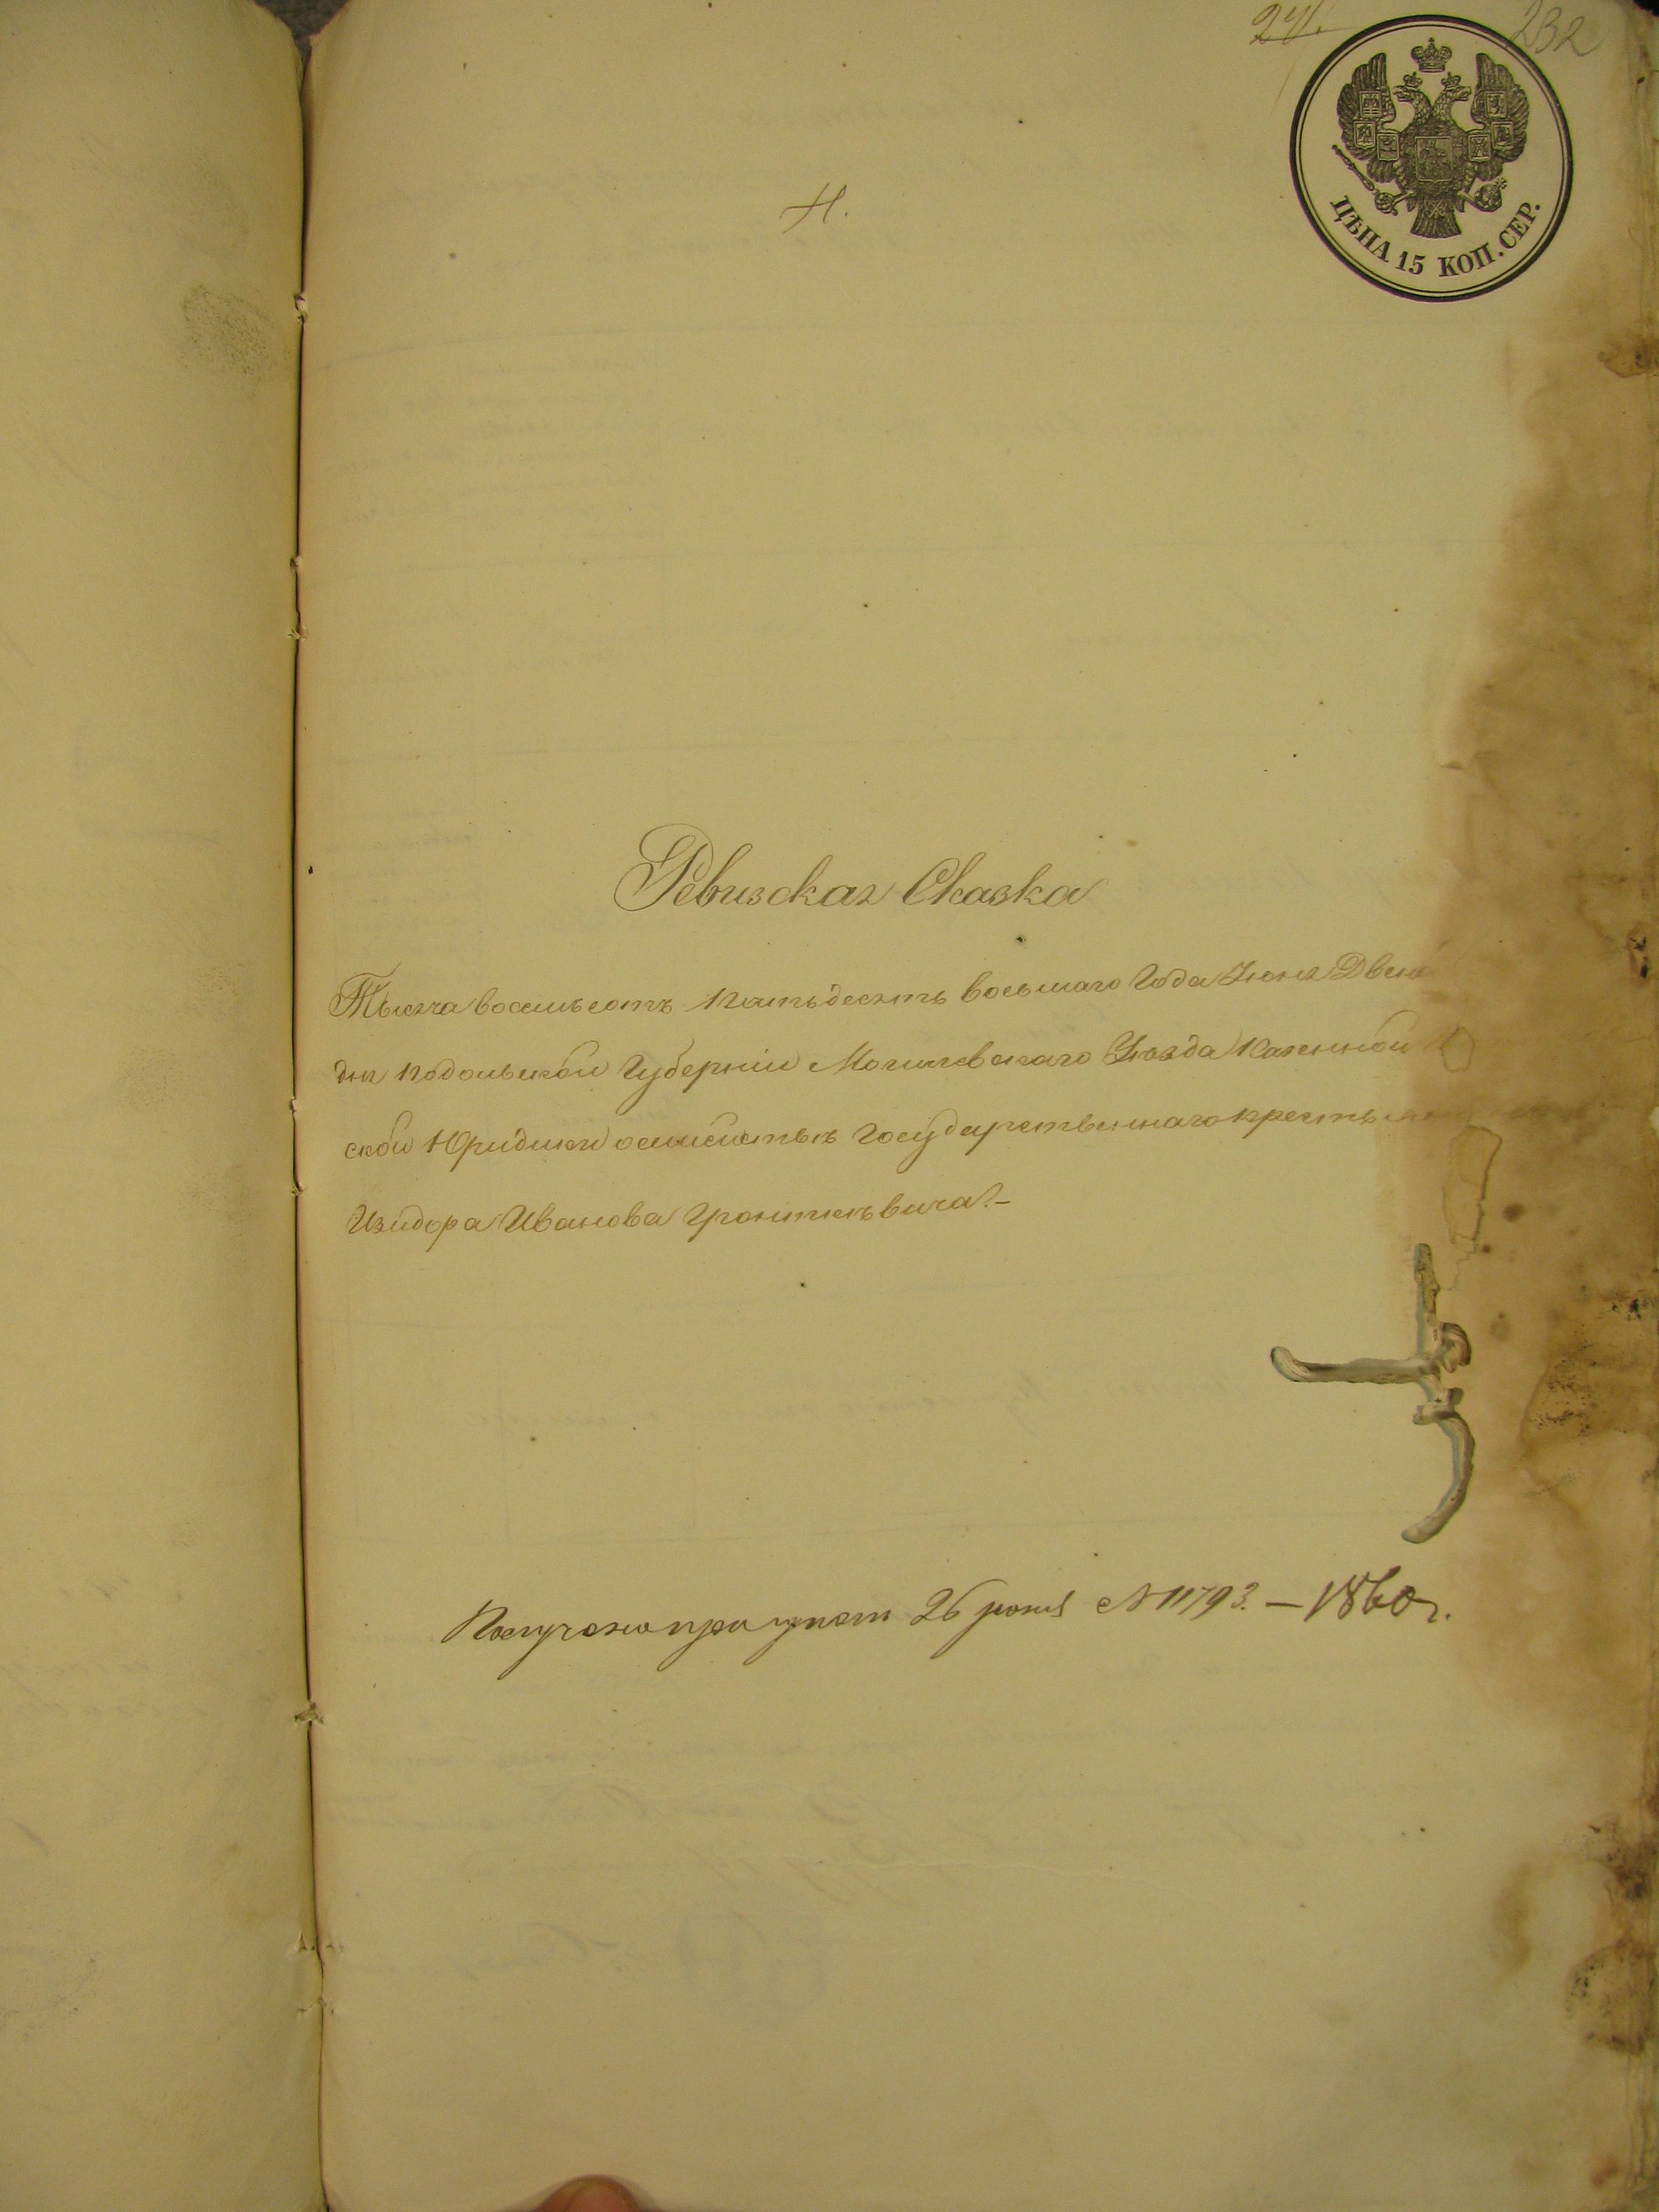 241. 232
ЦѢНА 15 КОП. СЕР.
Н.
Ревизская Сказка
Тысяча восемьсотъ пятьдесятъ восьмаго Года Іюня Двен
дня Подольской Губерніи Могилевскаго Уѣзда Казенной
ской Юридики о семействѣ Государственнаго крестья
Изидора Иванова
Получено при 26 іюня № 11793. – 1860 г.